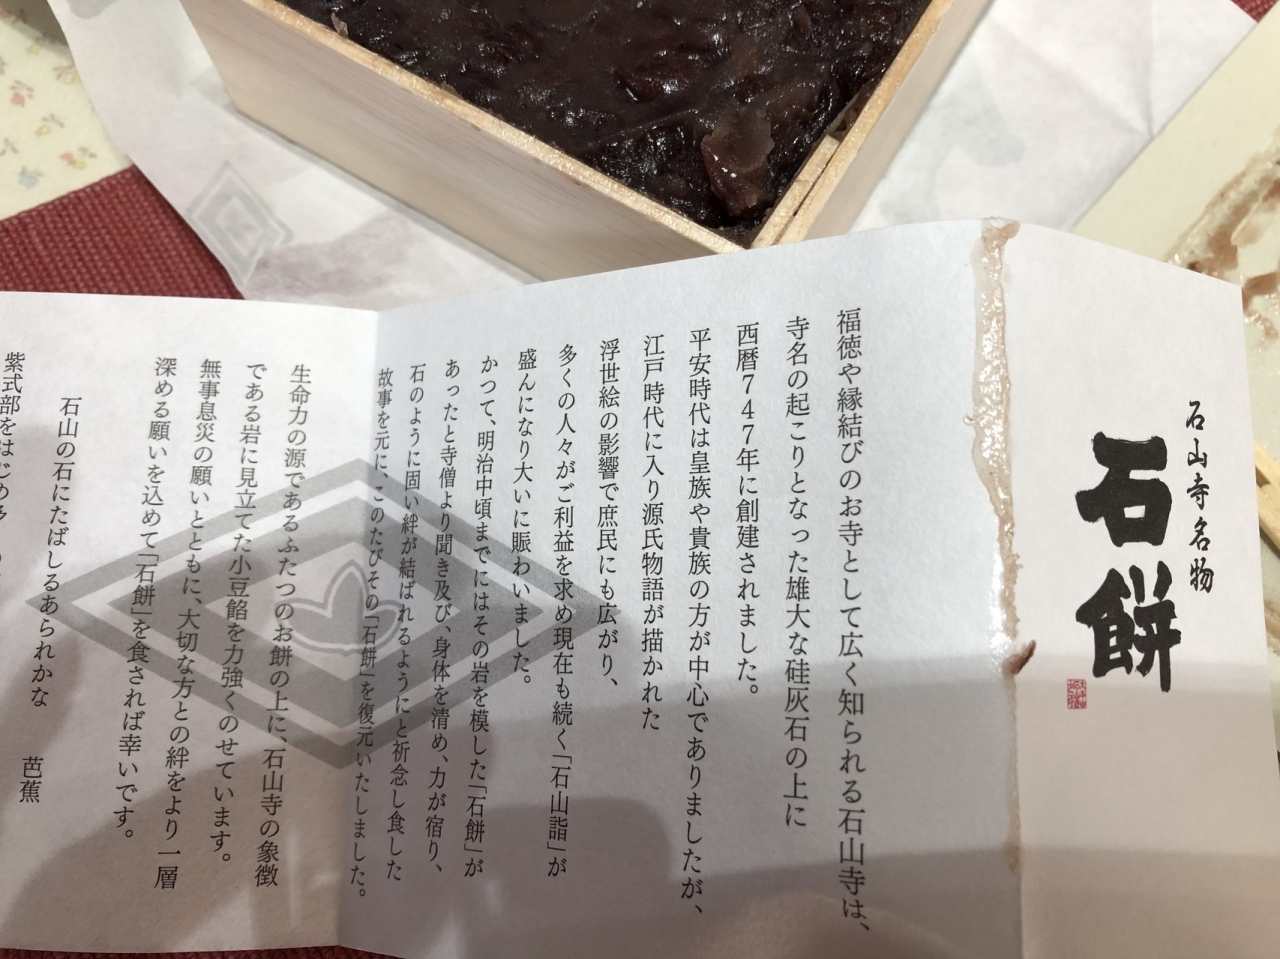 石山寺名物
石餅
福徳や縁結びのお寺として広く知られる石山寺は、
寺名の起こりとなった雄大な硅灰石の上に
西暦747年に創建されました。
平安時代は皇族や貴族の方が中心でありましたが、
江戸時代に入り源氏物語が描かれた
浮世絵の影響で庶民にも広がり、
多くの人々がご利益を求め現在も続く「石山詣」が
盛んになり大いに賑わいました。
かつて、明治中頃まではその岩を模した「石餅」が
あったと寺僧より聞き及び、身体を清め、力が宿り、
石のように固い絆が結ばれるようにと祈念し食した
故事を元に、このたびその「石餅」を復元いたしました。
生命力の源であるふたつのお餅の上に、石山寺の象徴
である岩に見立てた小豆餡を力強くのせています。
無事息災の願いとともに、大切な方との絆をより一層
深める願いを込めて「石餅」を食されば幸いです。
石山の石にたばしるあられかな 芭蕉
紫式部をはじめ